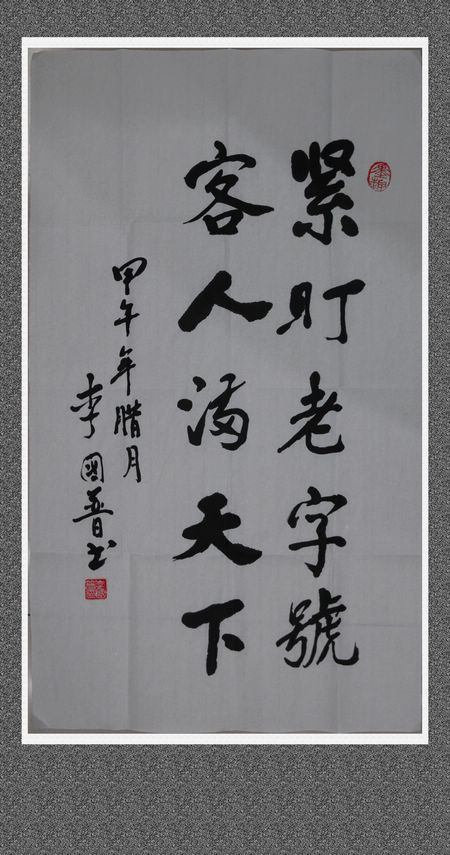 緊盯老字號
客人滿天下
甲午年腊月
李國普书